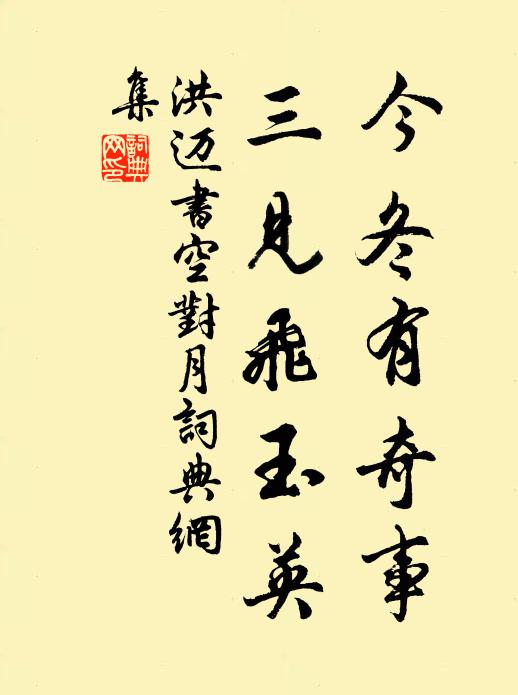 今冬有奇事
三見飛玉英
洪迈書空對月詞典網
集
詞典
网印